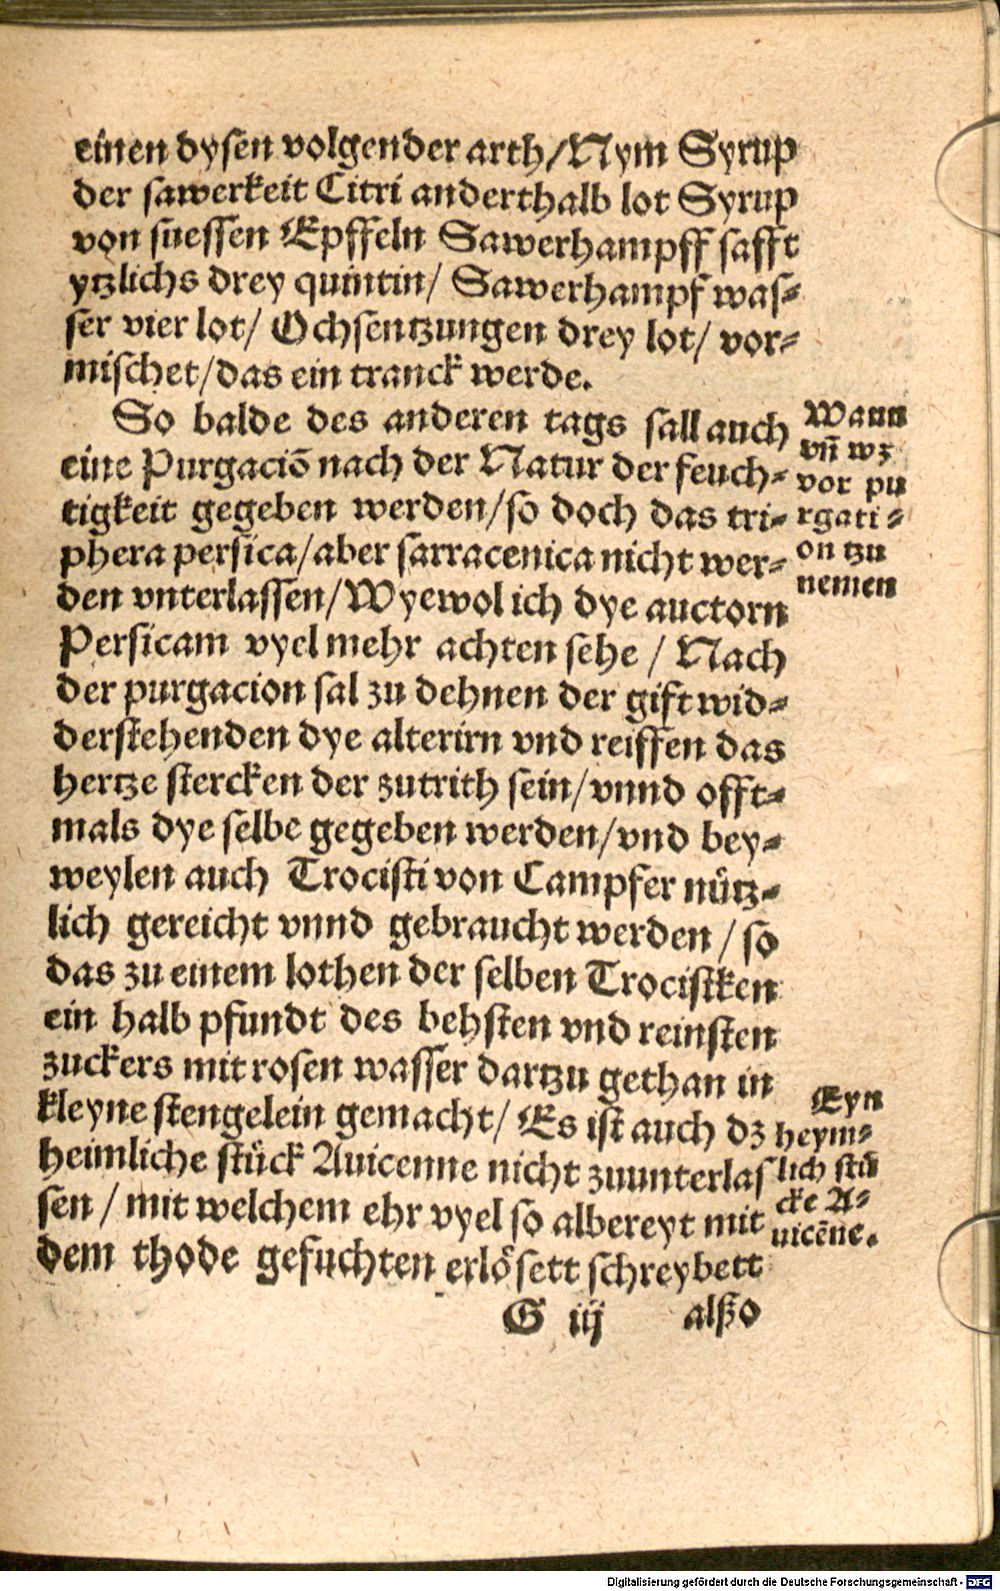 einen dysen volgender arth/Nym Syrup
der sawerkeit Citri anderthalb lot Syrup
von suessen Epffeln Sawerhampff safft
ytzlichs drey quintin/ Sawerhampf was⸗
ser vier lot/ Ochsentzungen drey lot/ vor⸗
mischet/das ein tranck werde.
So balde des anderen tags sall auch
eine Purgaciō nach der Natur der feuch⸗
tigkeit gegeben werden/so doch das tri⸗
phera persica/aber sarracenica nicht wer⸗
den vnterlassen/Wyewol ich dye auctorn
Persicam vyel mehr achten sehe / Nach
der purgacion sal zu dehnen der gift wid⸗
derstehenden dye alterirn vnd reiffen das
hertze stercken der zutrith sein/vnnd offt⸗
mals dye selbe gegeben werden/vnd bey⸗
weylen auch Trocisti von Campfer nuͤtz⸗
lich gereicht vnnd gebraucht werden / so
das zu einem lothen der selben Trocistken
ein halb pfundt des behsten vnd reinsten
zuckers mit rosen wasser dartzu gethan in
kleyne stengelein gemacht/ Es ist auch dz
heimliche stuͤck Auicenne nicht zuunterlas
sen / mit welchem ehr vyel so albereyt mit
dem thode gefuchten erloͤsett schreybett
G iij alßo
Wann
vñ wz
vor pu
rgati⸗
on tzu
nemen
Eyn
heym⸗
lich stuͤ
cke A⸗
uicēne.
Digitalisierung gefördert durch die Deutsche Forschungsgemeinschaft - DFG